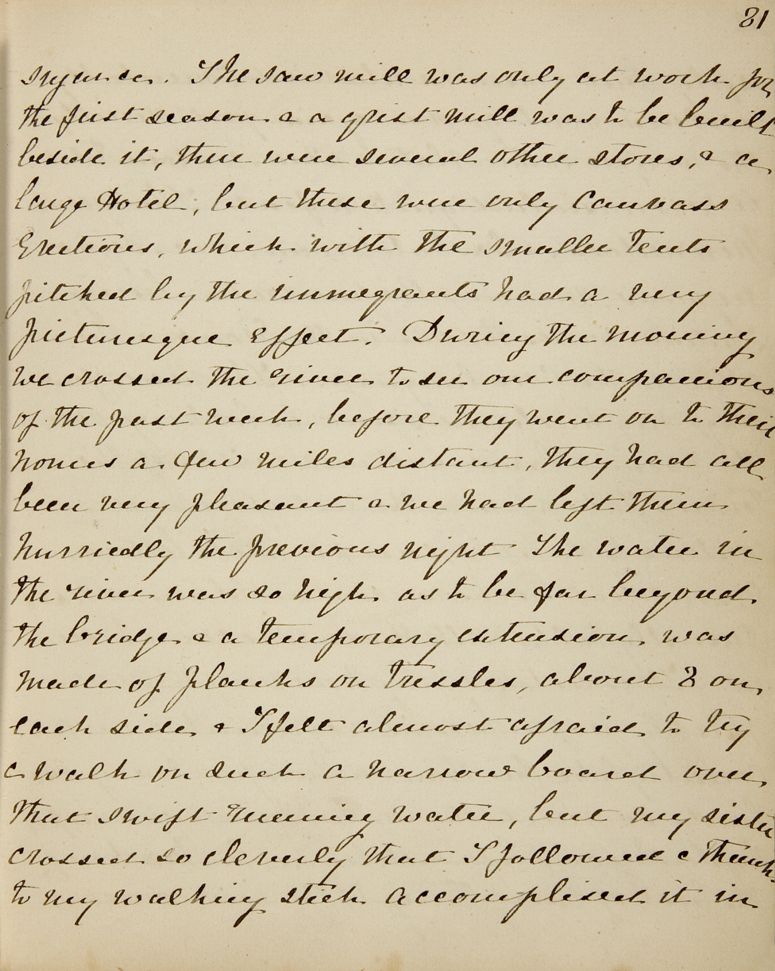 81
The saw mill was only at work for
the first season & a grist mill was to be built
beside it, there were several other stores, & a
large Hotel, but these were only Canvass
Erections, which with the smaller tents
pitched by the immegrants had a very
picturesque effect. During the morning
we crossed the river to see our companions
of the past week, before they went on to their
homes a few miles distant, they had all
been very pleasant & we had left them
hurriedly the previous night The water in
the river was so high as to be far beyond
the bridge & a temporary extension was
made of planks on tressles, about 8 on
each side & I felt almost afraid to try
a walk on such a narrow board over
that swift running water, but my sister
crossed so cleverly that I followed & thanks
to my walking stick accomplised it in